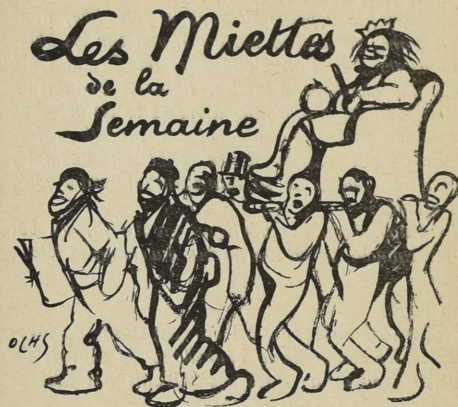 Les Miettes
de la
Semaine
OCHS